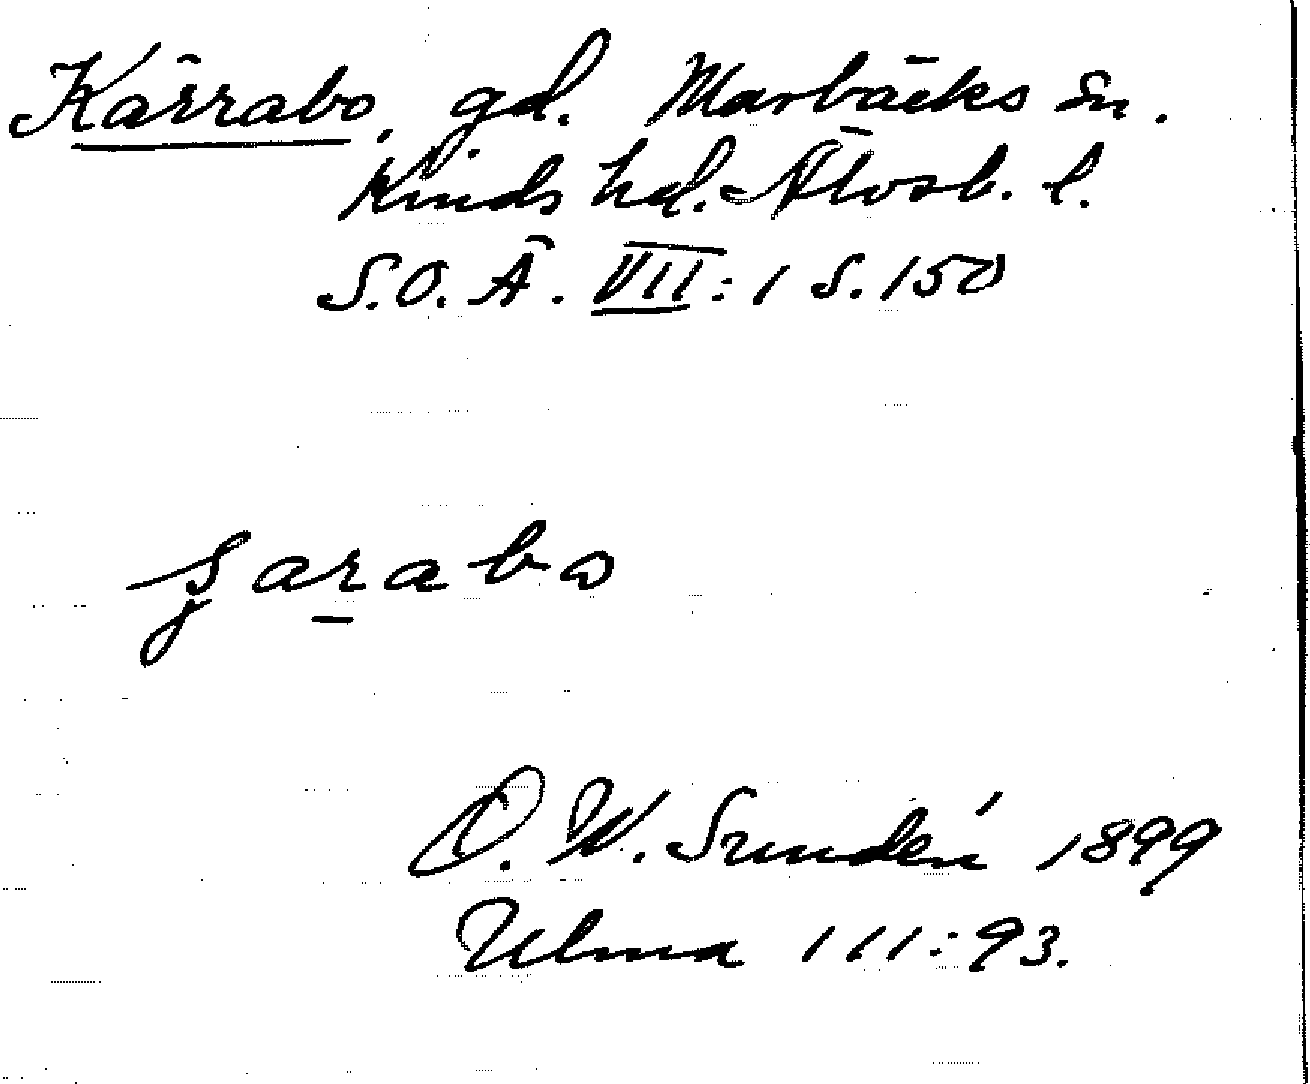 Kärrabo, gd. Marbäcks sn.
Kinds hd. Älvsb. l.
S.O.Ä. VII: 1 S. 150
D. W. Sundén 1899
Ulma 111:93.